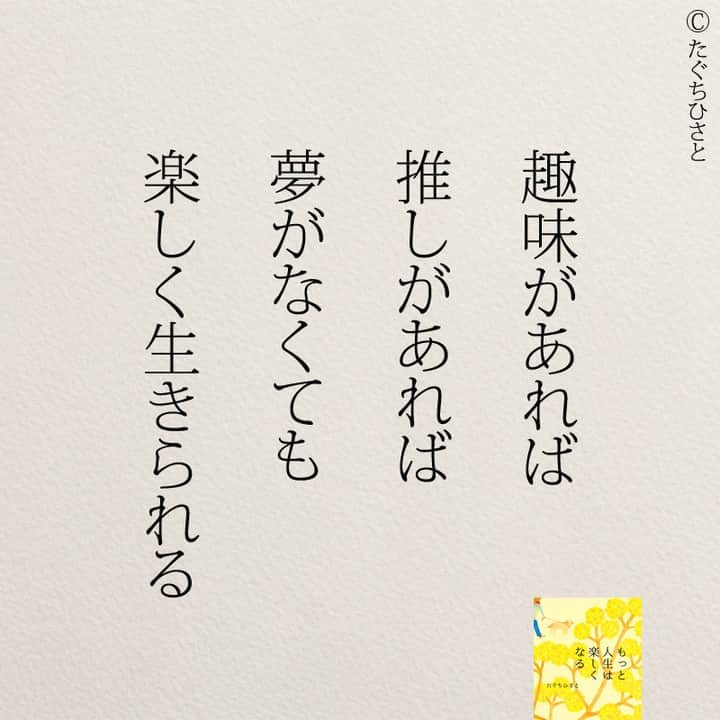 ©たぐちひさと
趣味があれば
推しがあれば
夢がなくても
楽しく生きられる
もっと
人生は
楽しく
なる
たぐちひさと